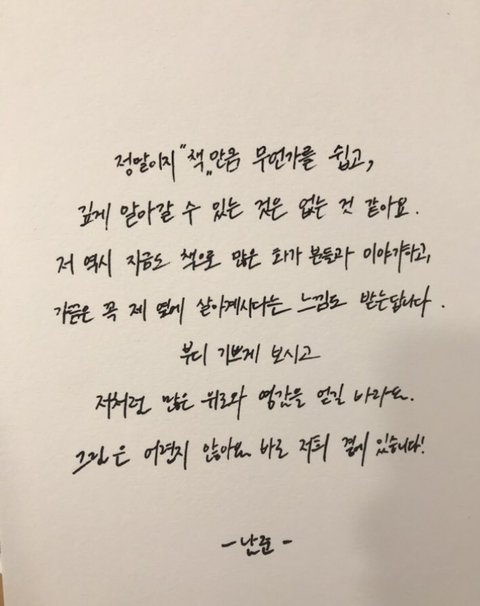 정말이지 "책"만큼 무언가를 쉽고,
깊게 알아갈 수 있는 것은 없는 것 같아요.
저 역시 지금도 책으로 많은 화가 분들과 이야기하고,
가끔은 꼭 제 옆에 살아계시다는 느낌도 받는답니다.
부디 기쁘게 보시고
저처럼 많은 위로와 영감을 얻길 바라요.
그림은 어렵지 않아요 바로 저희 곁에 있습니다!
- 남준 -